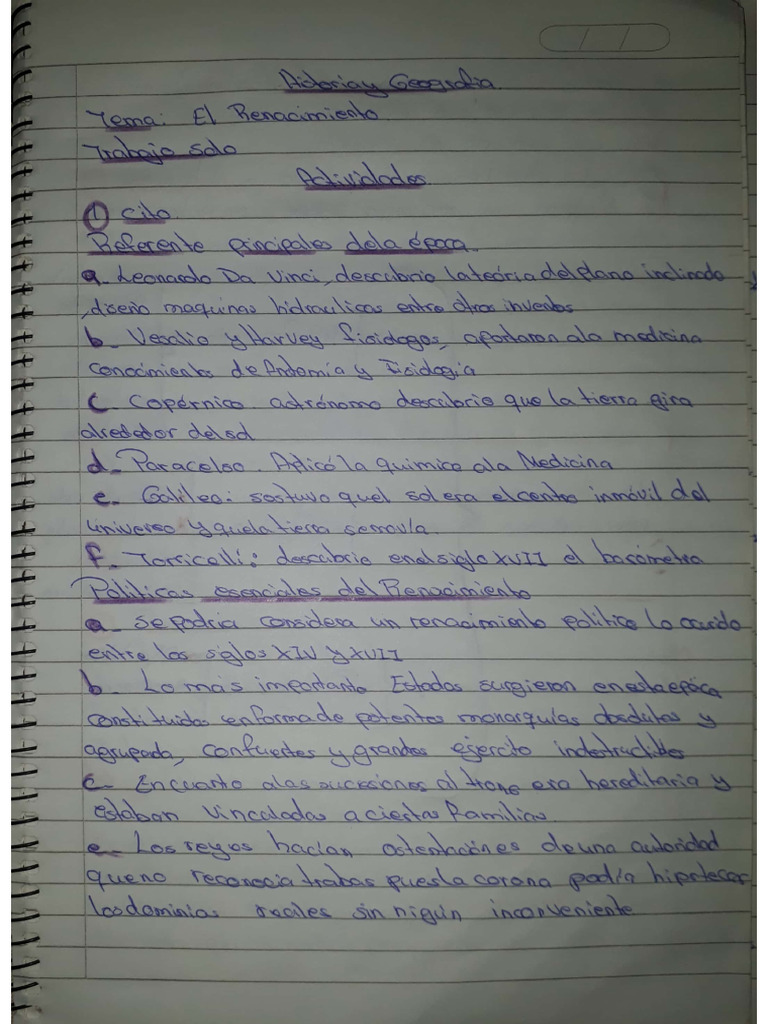 Historia y Geografia
Tema: El Renacimiento
Trabajo solo
Actividades
① Cito
Referente principales dela época
a- Leonardo Da Vinci, descubrio la teória del plano inclinado
, diseño maquinas hidraulicas entre otros inventos
b- Vesalio y Harvey fisiologos, aportaron ala medicina
conocimiento de Antomía y Fisiología
c- Copérnico astrónomo descubrio que la tierra gira
alrededor del sol
d- Paracelso. Aplicó la quimica ala Medicina
e- Galileo: sostuvo quel sol era el centro inmóvil del
universo y quela tierra semovía.
f- Torricelli: descubrio enel siglo XVII el barómetro
Politicas esenciales del Renacimiento
a- se podria considera un renacimiento politico lo ocurido
entre los siglos XIV y XVII
b- Lo más importante Estados surgieron enesta epóca
constituidas enforma de potentes monarquías absolutas y
agrupada, confuertes y grandes ejercito indestructibles
c- Encuanto alas sucesiones al trono era hereditaria y
estaban vinculadas a ciertas familias
e- Los reyes hacían ostentaciónes deuna autoridad
queno reconocia trabas puesla corona podía hipotecar
losdominios reales sin nigún inconveniente